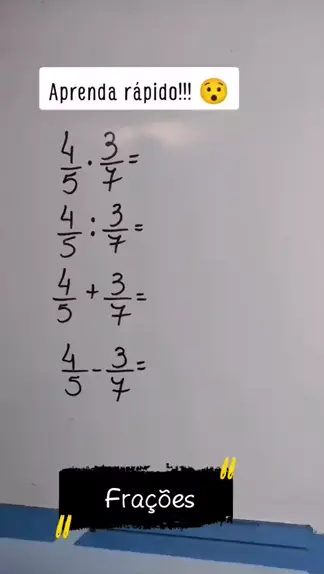 Aprenda rápido!!! 😯
4/5 · 3/7 =
4/5 : 3/7 =
4/5 + 3/7 =
4/5 - 3/7 =
Frações